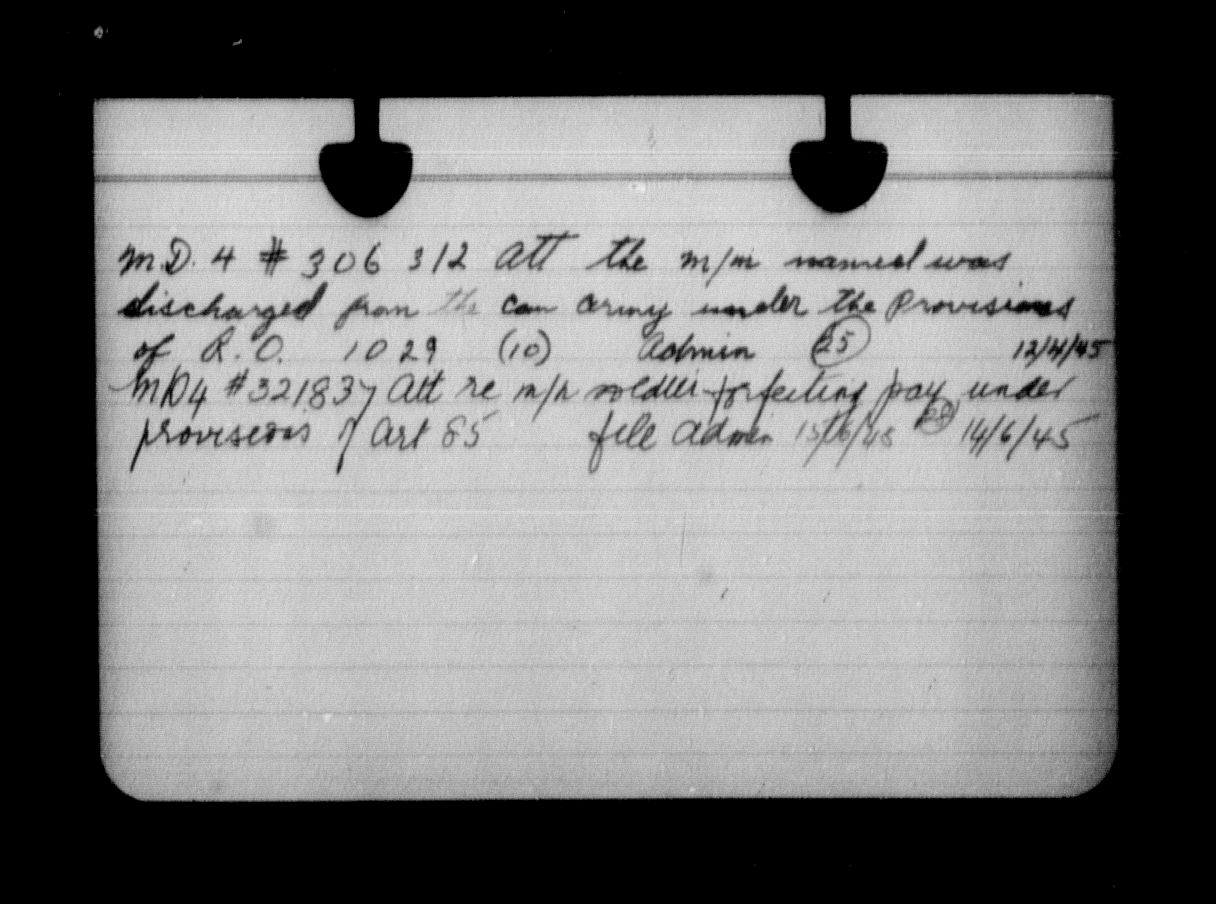 M.D. 4 # 306 312 Att the m/m named was
discharged from the can army under the Provisions
of R.O. 1029 (10) Admin (25) 12/4/45
MD4 #321837 Att re m/n soldier forfeiting pay under
provisions of Art 85 file Admin 28 14/6/45